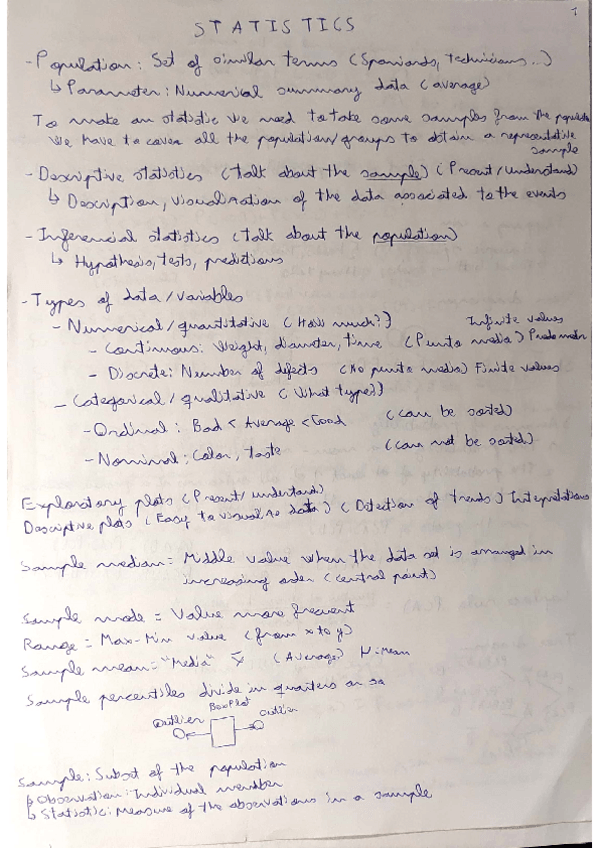 1
STATISTICS
- Population: Set of similar terms (Spaniards, Technicians...)
↳ Parameter: Numerical summary data (average)
To make an statistic we need to take some samples from the
We have to cover all the population/groups to obtain a representative
sample
- Descriptive statistics (talk about the sample) (Present/understand)
↳ Description, visualisation of the data associated to the events
- Inferencial statistics (talk about the population)
↳ Hypothesis, tests, predictions
- Types of data/variables
- Numerical/quantitative (How much?) Infinite values
- Continuous: Weight, diameter, time (Punto media)
- Discrete: Number of defects (No punto media) Finite values
- Categorical/qualitative (What type?)
- Ordinal: Bad < Average < Good (can be sorted)
- Nominal: Color, taste (can not be sorted)
Exploratory plots (Present/understand)
Descriptive plots (Easy to visualise data) (Detection of trends) Interpretations
Sample median = Middle value when the data set is arranged in
increasing order (central point)
Sample mode = Value more frequent
Range = Max-Min value (from x to y)
Sample mean = "Media" x̄ (Average) μ-Mean
Sample percentiles divide in quarters or so
BoxPlot
Outlier Outlier
Sample: Subset of the population
↳ Observation: Individual member
↳ Statistic: Measure of the observations in a sample